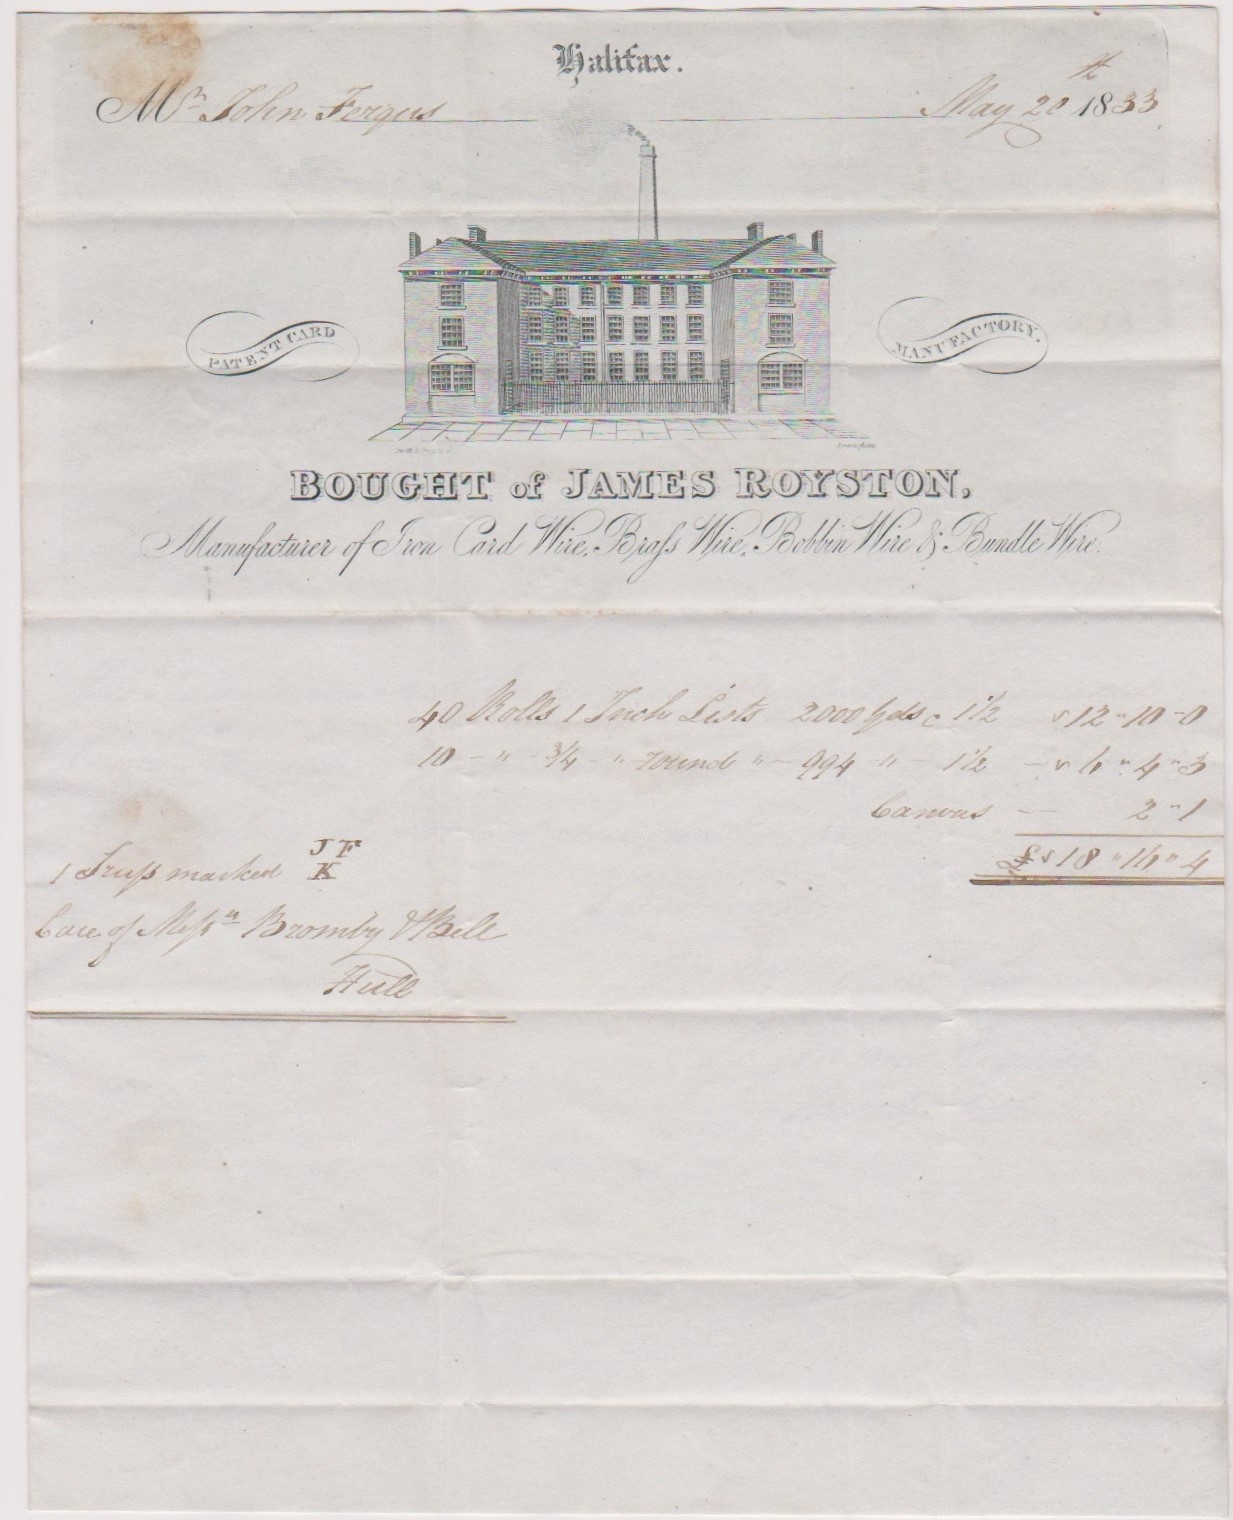 Halifax.
Mr. John Fergus May 20th 1833
PATENT CARD MANUFACTORY.
BOUGHT of JAMES ROYSTON,
Manufacturer of Iron Card Wire, Braſs Wire, Bobbin Wire & Bundle Wire.
40 Rolls 1 Inch Lists 2000 yds 1½ 12 " 10 - 0
10 - " - ¾ - " round " - 994 - " - 1½ - 6 " 4 " 3
Canvas — 2 " 1
£ 18 " 16 " 4
J F
1 Truſs marked K
Care of Meſsrs Bromby & Bell
Hull